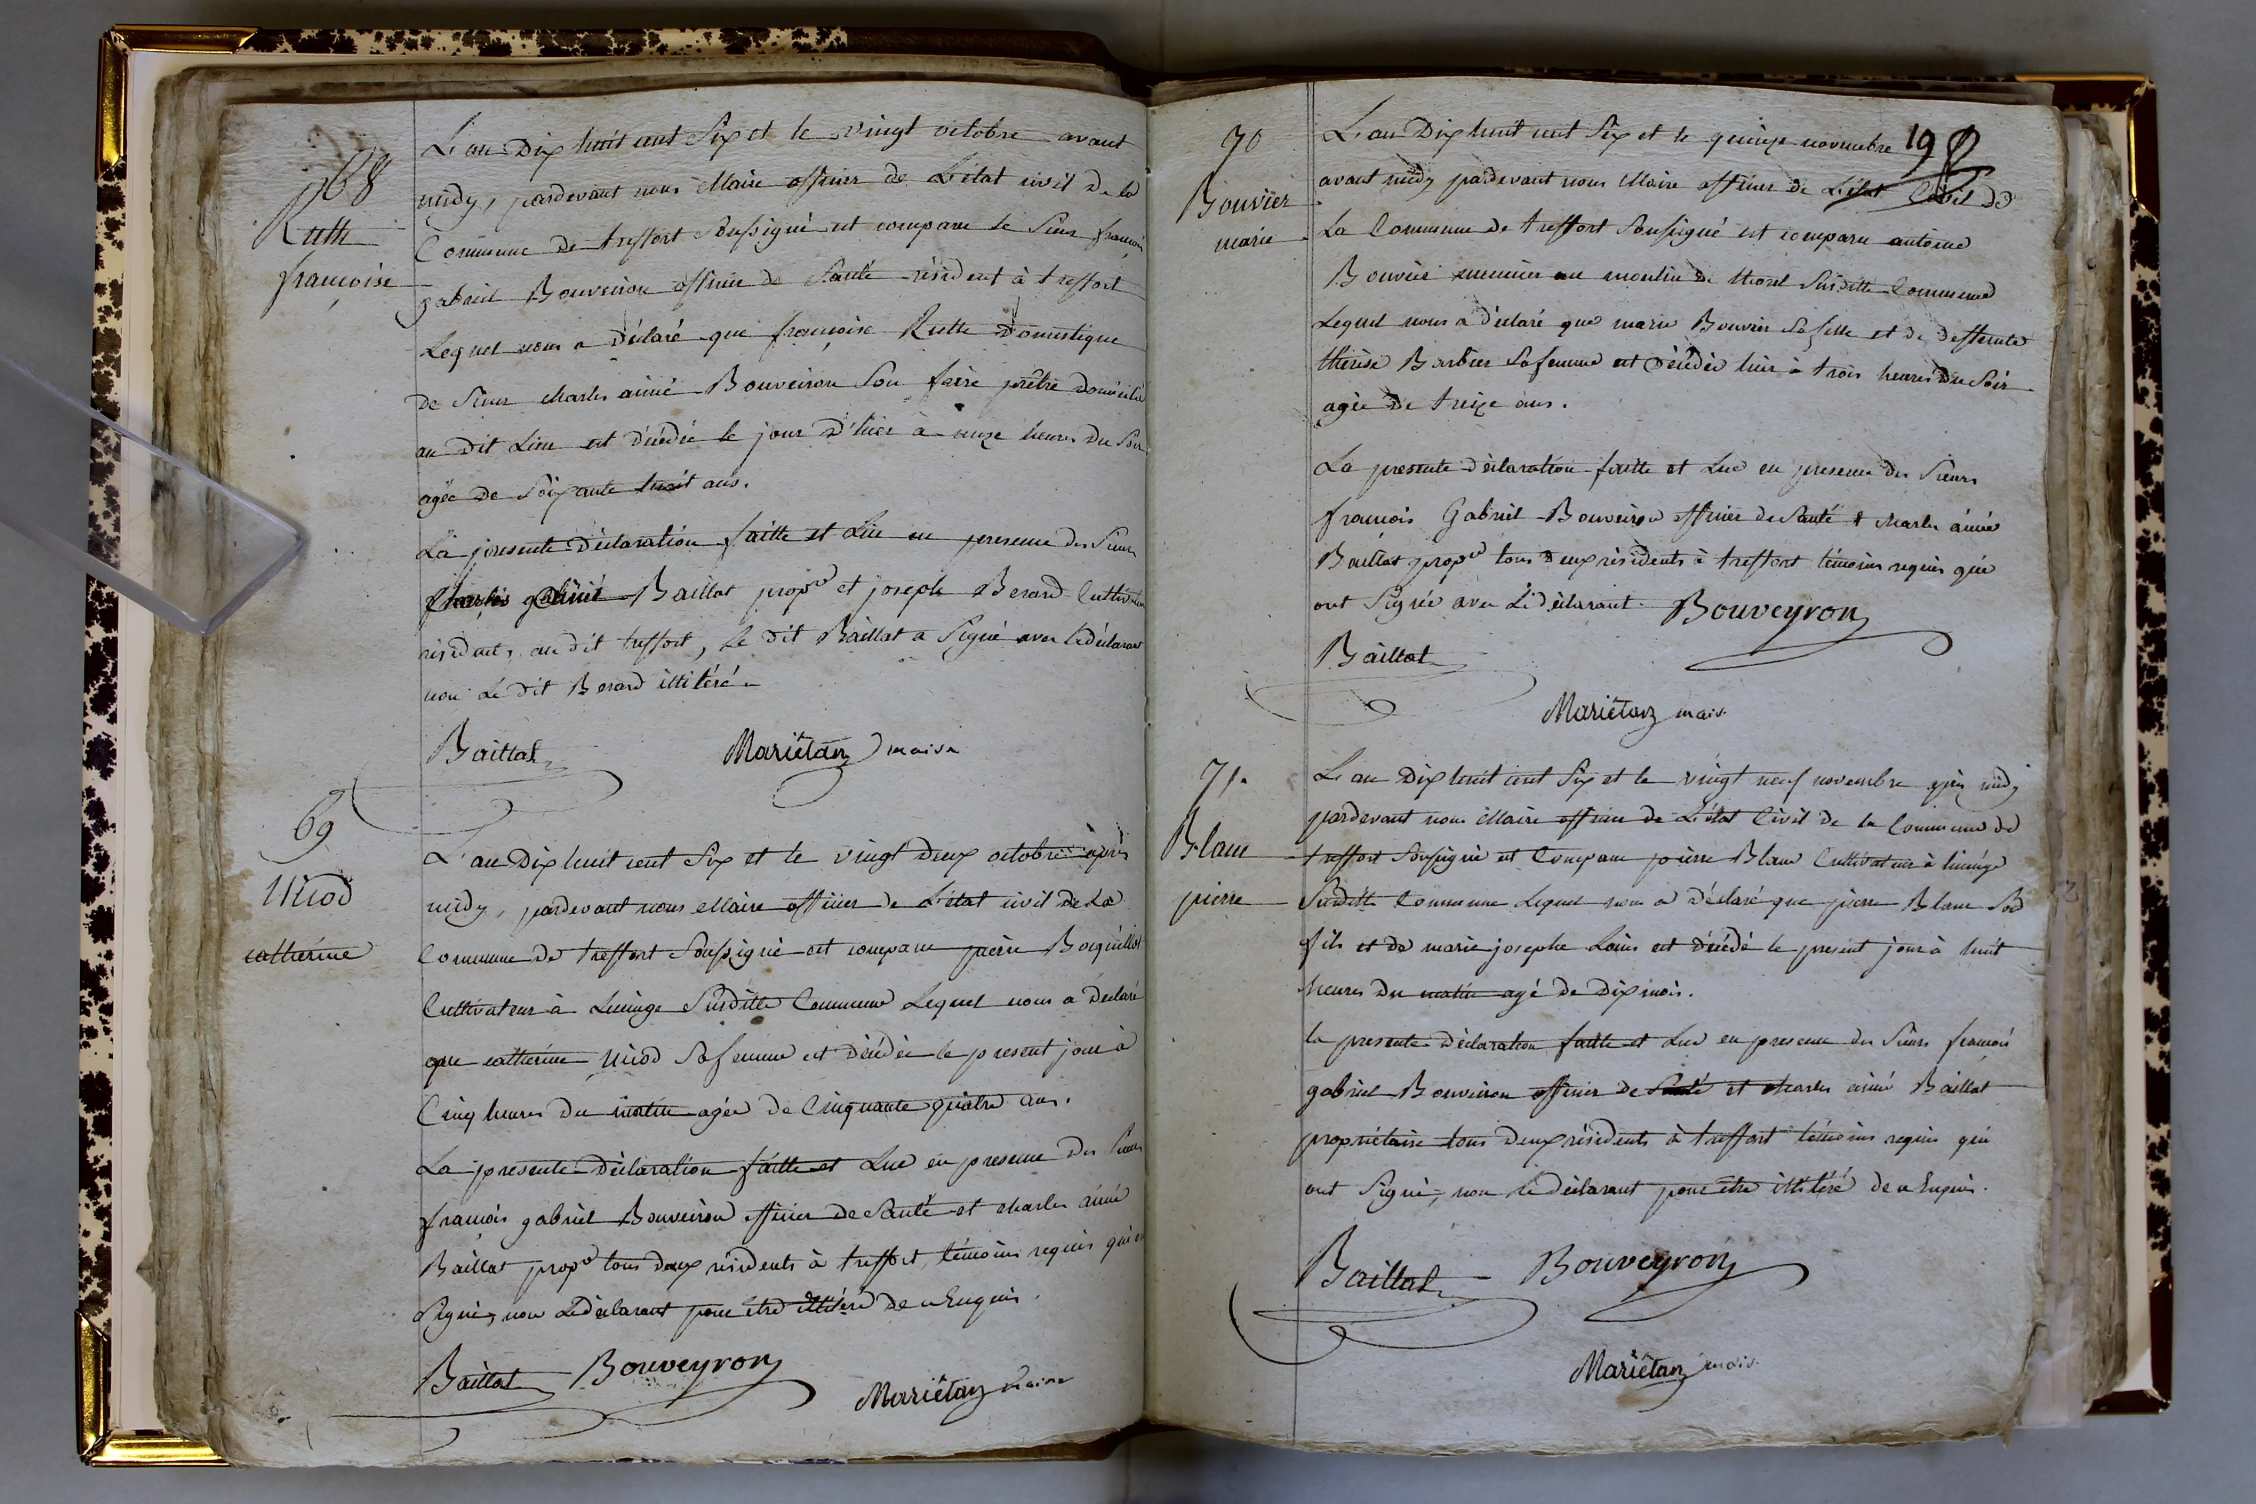 68
Ruth
françoise
L'an Dix huit cent Six et le vingt octobre avant
midy, pardevant nous Maire officier de L'état civil de la
Commune de treffort Soussigné est comparu le Sieur françois
gabriel Bouveiron officier de Santé résident à treffort
Lequel nous a déclaré que françoise Ruth Domestique
de Sieur charles aimé Bouveiron Son frère prêtre domicilié
au dit Lieu est décédée le jour D'hier à onze heures du Soir
agée de Soixante huit ans.
La presente Déclaration faitte et Lue en presence des Sieurs
Baillat propre et joseph Berard Cultivateur
résidents au dit treffort, le dit Baillat a Signé avec le déclarant
non Le dit Berard illitéré
Baillat Mariétan maire
69
Nicod
catherine
L'an Dix huit cent Six et le vingt deux octobre après
midy, pardevant nous Maire officier de L'état civil de La
Commune de treffort Soussigné est comparu pierre Boquillot
Cultivateur à Lucinge Susditte Commune Lequel nous a déclaré
que catherine Nicod Sa femme est décédée le présent jour à
Cinq heures du matin agée de Cinquante quatre ans.
La presente Déclaration faitte et Lue en presence des Sieurs
françois gabriel Bouveiron officier de Santé et charles aimé
Baillat propre tous deux résidents à treffort, témoins requis qui
Signé, non Le déclarant pour être illitéré de ce Enquis.
Baillat Bouveyron
Mariétan Maire
198
70
Bouvier
marie
L'an Dix huit cent Six et le quinze novembre
avant midy pardevant nous Maire officier de L'état Civil de
La Commune de treffort Soussigné est comparu antoine
Bouvier meunier au moulin de Susditte Commune
Lequel nous a déclaré que marie Bouvier Sa fille et de deffunte
thérèse Barbier Sa femme est décédée hier à trois heures du Soir
agée De treize ans.
La presente déclaration faitte et Lue en presence des Sieurs
françois Gabriel Bouveiron officier de Santé & charles aimé
Baillat propre tous deux résidents à treffort témoins requis qui
ont Signée avec Le déclarant. Bouveyron
Baillat
Mariétan mair
71.
Blanc
pierre
L'an Dix huit cent Six et le vingt neuf novembre après midy
pardevant nous Maire officier de L'état Civil de la Commune de
treffort Soussigné est Comparu pierre Blanc Cultivateur à lucinge
Susditte Commune Lequel nous a déclaré que pierre Blanc Son
fils et de marie josephe Louis est décédé le present jour à huit
heures du matin agé de Dix mois.
la presente déclaration faitte et Lue en presence des Sieurs françois
gabriel Bouveiron officier de Santé et charles aimé Baillat
propriétaire tous deux résidents à treffort témoins requis qui
ont Signé, non le déclarant pour être illitéré de ce Enquis.
Baillat Bouveyron
Mariétan mair